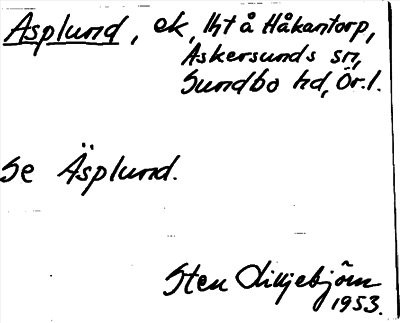 Asplund, ek, lht å Håkantorp,
Askersunds sn,
Sundbo hd, Ör.l.
Se Äsplund.
Sten Lilljebjörn
1953.